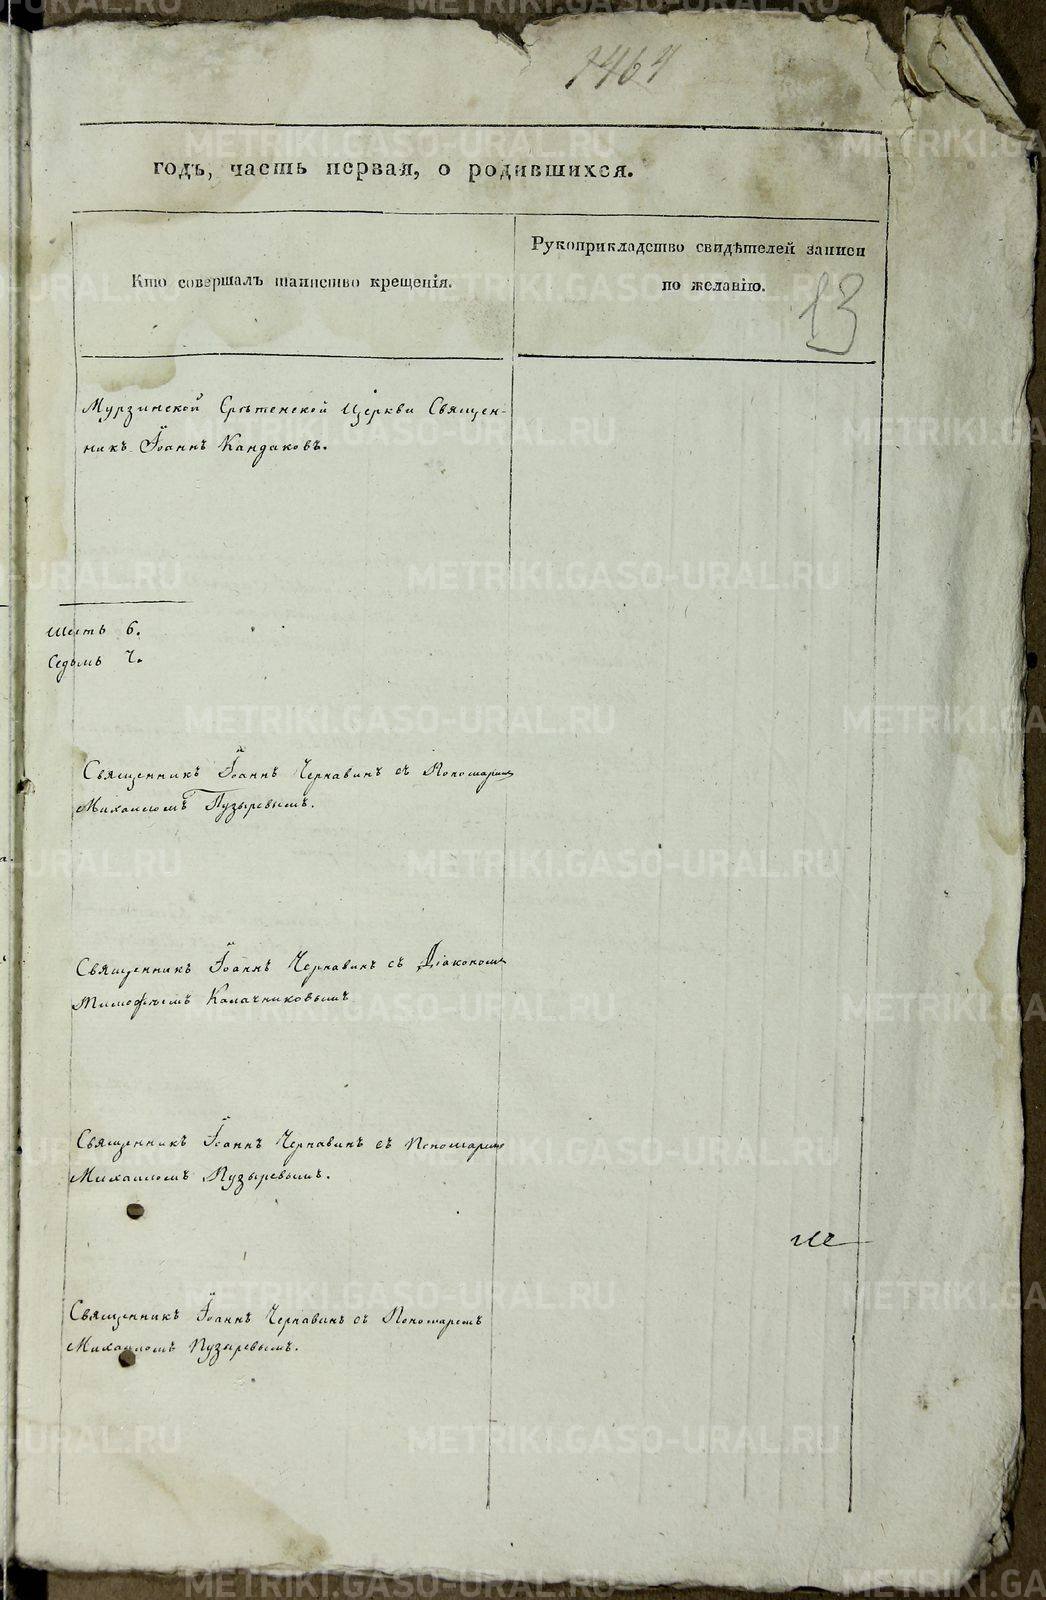 1464
годъ, часть первая, о родившихся.
Кто совершалъ таинство крещенія.
Рукоприкладство свидѣтелей записи
по желанію.
13
Мурзинской Срѣтенской Церкви Священ-
никъ Іоаннъ Кандаковъ.
Шесть 6.
Седьмь 7.
Священникъ Іоаннъ Чернавинъ съ Пономаремъ
Михаиломъ Пузыревымъ.
Священникъ Іоаннъ Чернавинъ съ Діакономъ
Тимофѣемъ Калачниковымъ
Священникъ Іоаннъ Чернавинъ съ Пономаремъ
Михаиломъ Пузыревымъ.
Священникъ Іоаннъ Чернавинъ съ Пономаремъ
Михаиломъ Пузыревымъ.
METRIKI.GASO-URAL.RU